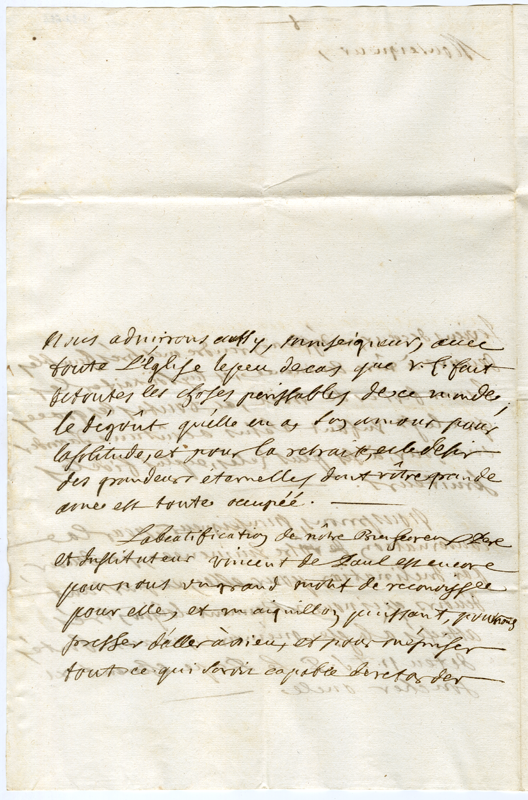 Nous admirons aussy, monseigneur, avec
toute L'Eglise le peu de cas que v. G. fait
de toutes les choses perissables de ce monde,
le dégoût qu'elle en a, son amour pour
la solitude, et pour la retraite, et le desir
des grandeurs eternelles dont vôtre grande
ame est toute occupée.
La beatification de nôtre Bienheureux Pere
et Instituteur vincent de Paul est encore
pour nous un grand motif de reconnoissance
pour elle, et un aiguillon puissant, pour nous
presser d'aller à Dieu, et pour mepriser
tout ce qui seroit capable de retarder